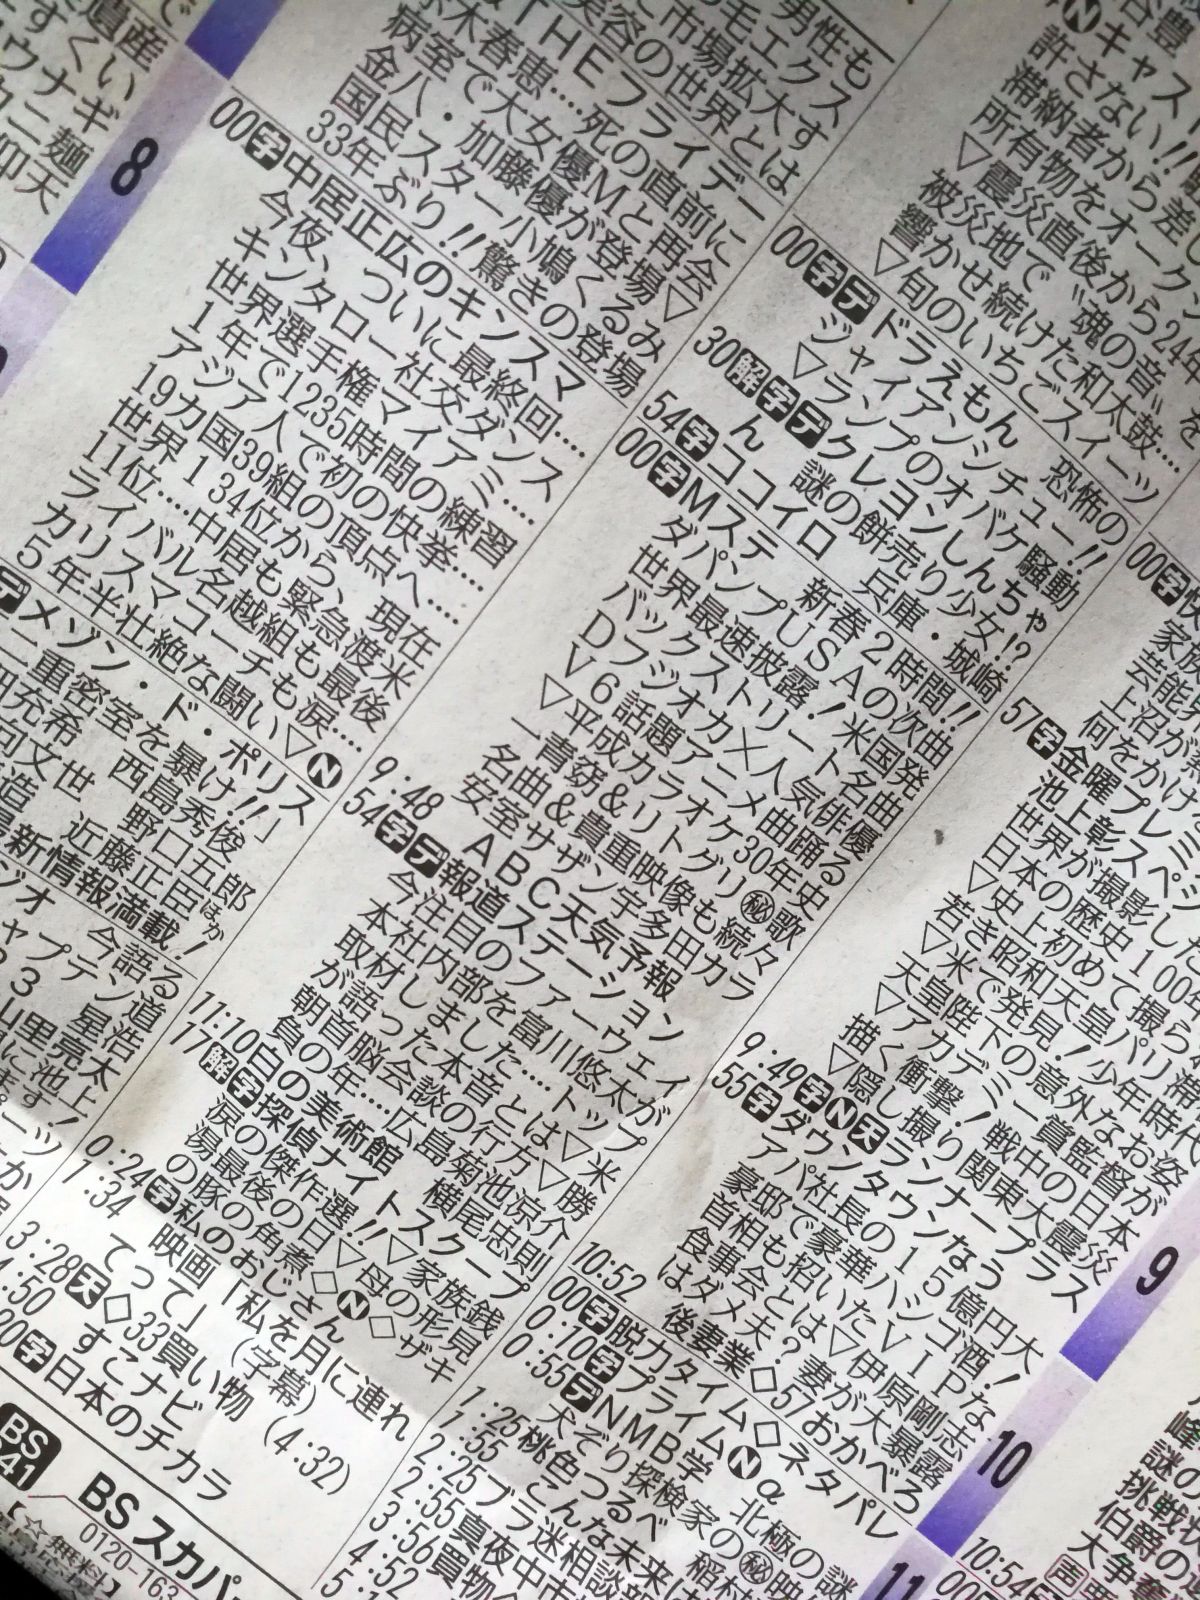 遺産
8
男性も
毛エクス
に市場拡大す
美容の世界とは
THEフライデー
木春恵…死の直前に
病室で大女優Mと再会▽
金八・加藤優が登場▽
国民スター小鳩くるみ
33年ぶり!!驚きの登場
00字中居正広のキンスマ
今夜、ついに最終回…
キンタロー社交ダンス
世界選手権マイアミ…
1年で1235時間の練習
アジア人で初の快挙…
19カ国39組の頂点へ…
世界134位から、現在
11位…中居も緊急渡米
ライバル名越組も最後
カリスマコーチも涙…
5年半壮絶な闘い▽N
デメゾン・ド・ポリス
二重密室を暴け!!」
西島秀俊
野口五郎
近藤正臣ほか
新情報満載!
今語る
道浩
星太
山里亮
池上
Nキャス!!
許さない!!
滞納者から差し
所有物をオークシ
▽震災直後から24年
被災地で〝魂の音〟を
響かせ続けた和太鼓…
▽旬のいちごスイーツ
00字デドラえもん 恐怖の
ジャイアンシチュー!!
▽ランプのオバケ騒動
30解字デクレヨンしんちゃ
ん 謎の餅売り少女!?
54字ココイロ 兵庫・城崎
00字Mステ 新春2時間!!
ダパンプUSAの次曲
世界最速披露!米国発
バックストリート名曲
Dフジオカ×人気俳優
V6話題アニメ曲踊る
▽平成カラオケ30年史
一青窈&リトグリ㊙歌
名曲&貴重映像も続々
安室サザン宇多田カラ
9:48 ABC天気予報
54字デ報道ステーション
今注目のファーウェイ
本社内部を富川悠太が
取材しました…トップ
が語った本音とは▽米
朝首脳会談の行方▽勝
負の年…広島菊池涼介
11:10白の美術館 横尾忠則
17解字探偵ナイトスクープ
涙の傑作選!!▽家族銭
湯最後の日▽母の形見
の豚の角煮◇N◇ザキ
0:24字私のおじさん
1:34 映画「私を月に連れ
てって」(字幕)
3:28天◇33買い物(4:32)
4:50 すこナビ
20字日本のチカラ
BS
BSスカパー
0120-163
【☆無料】
00字快
家族
芸能界
上沼が
何をかけ
57字金曜プレミ
池上彰スペシ
世界が撮影した
日本の歴史100年
▽史上初めて撮ら
若き昭和天皇パリ滞
▽米で発見!少年時代
天皇陛下の意外なお姿
▽アカデミー賞監督が
描く衝撃!戦中の日本
▽隠し撮り関東大震災
9:49字N天ランナープラス
55字ダウンタウンなう
アパ社長の15億円大
豪邸で豪華ハシゴ酒!
首相も招いたVIPな
食事会とは▽伊原剛志
はダメ夫?妻が大暴露
10:52 後妻業◇57おかべろ
00字脱力タイム◇ネタパレ
0:10字プライムNα
0:55デNMB学 北極の謎
犬ぞり探検家の㊙映
1:25桃色つるべ 稲村
1:55 こんな未来は
2:25ブラ迷相談部
2:55真夜中市
3:56買物
4:52
9
10
11
10:54
00
謎の
挑戦状
伯爵の
大争奪